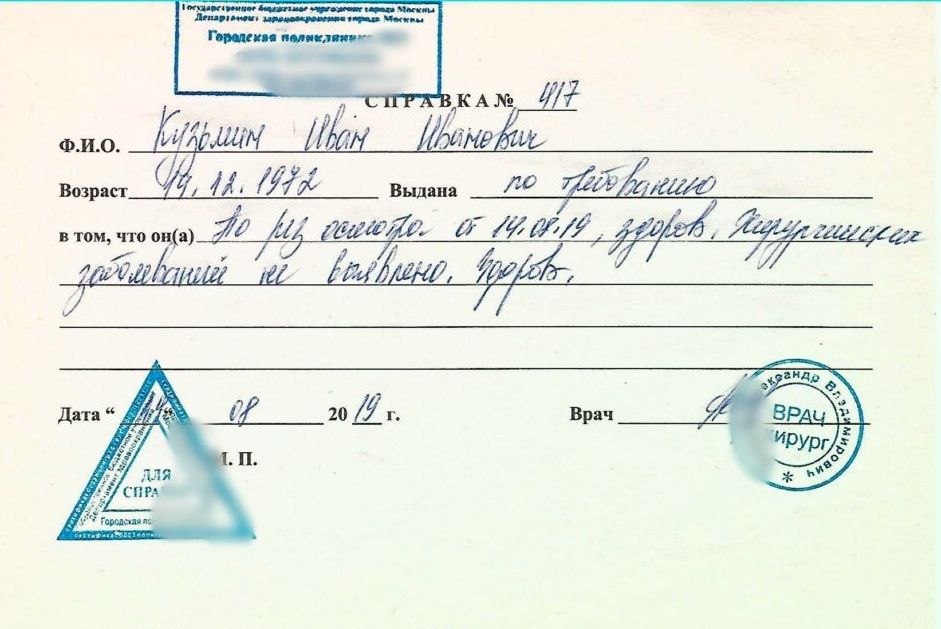 Государственное бюджетное учреждение города Москвы
Департамент здравоохранения города Москвы
Городская поликлиника
СПРАВКА № 417
Ф.И.О. Кузьмин Иван Иванович
Возраст 14.12.1972 Выдана по требованию
в том, что он(а) По рез осмотра от 14.08.19, здоров. Хирургических
заболеваний не выявлено. Здоров.
Дата “ 08 2019 г. Врач
М. П.
ДЛЯ
Городская
Александр Владимирович
ВРАЧ
хирург